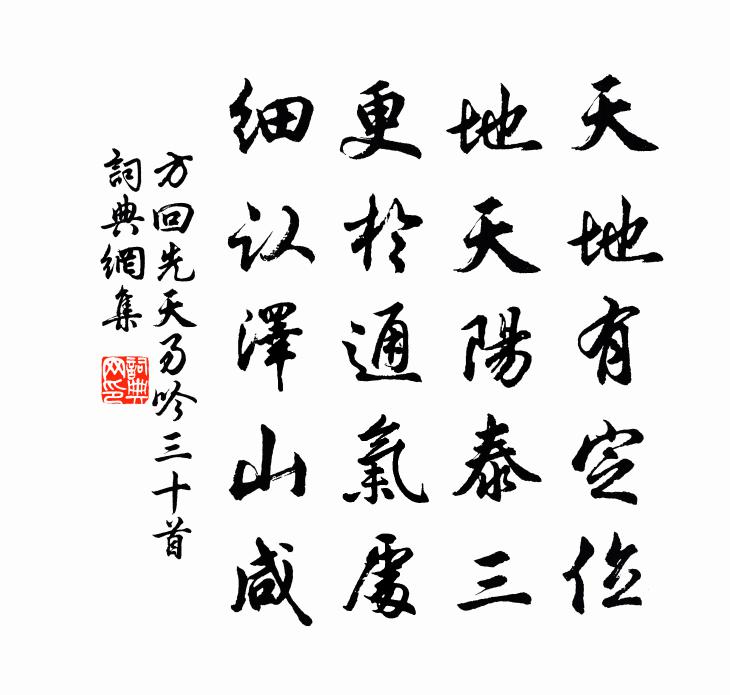 天地有定位
地天陽泰三
更於通氣處
細认澤山咸
方回先天易吟三十首
詞典網集
詞典网印